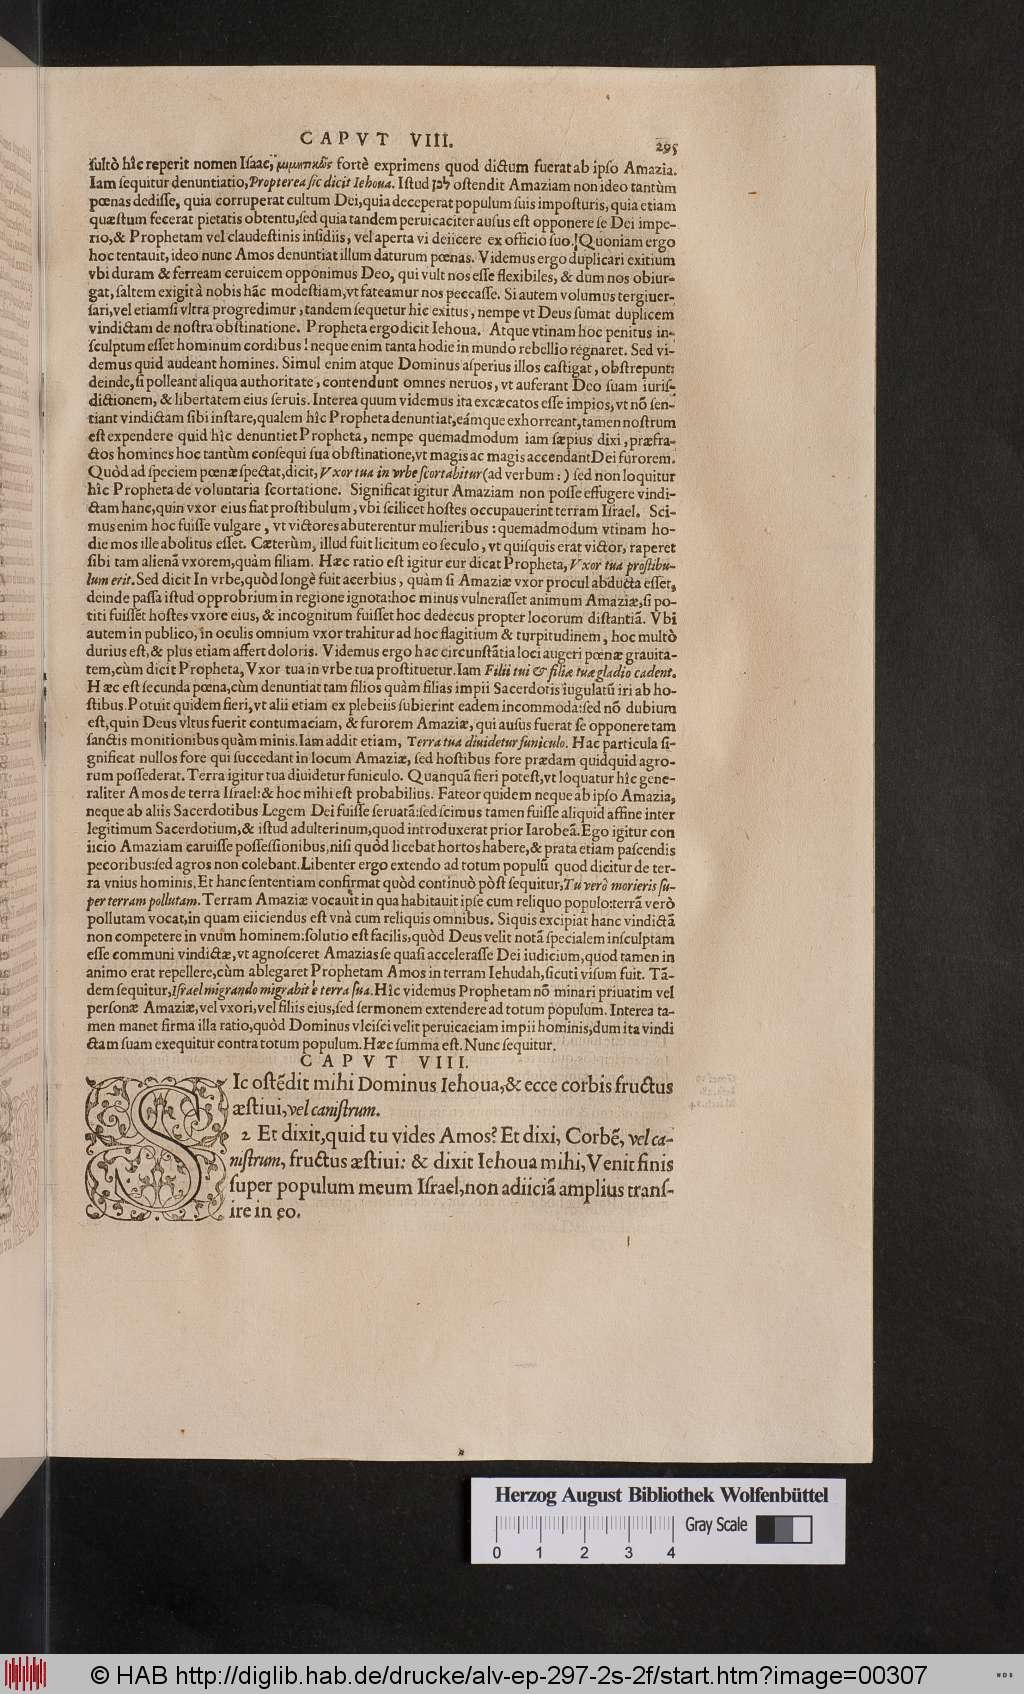 CAPVT VIII.
295
ſultò hîc reperit nomen Iſaac, μιμητικῶς fortè exprimens quod dictum fuerat ab ipſo Amazia.
Iam ſequitur denuntiatio, Propterea ſic dicit Iehoua. Iſtud לכן oſtendit Amaziam non ideo tantùm
pœnas dediſſe, quia corruperat cultum Dei, quia deceperat populum ſuis impoſturis, quia etiam
quæſtum fecerat pietatis obtentu, ſed quia tandem peruicaciter auſus eſt opponere ſe Dei impe-
rio, & Prophetam vel claudeſtinis inſidiis, vel aperta vi deiicere ex officio ſuo. Quoniam ergo
hoc tentauit, ideo nunc Amos denuntiat illum daturum pœnas. Videmus ergo duplicari exitium
vbi duram & ferream ceruicem opponimus Deo, qui vult nos eſſe flexibiles, & dum nos obiur-
gat, ſaltem exigit à nobis hãc modeſtiam, vt fateamur nos peccaſſe. Si autem volumus tergiuer-
ſari, vel etiamſi vltra progredimur, tandem ſequetur hic exitus, nempe vt Deus ſumat duplicem
vindictam de noſtra obſtinatione. Propheta ergo dicit Iehoua. Atque vtinam hoc penitus in-
ſculptum eſſet hominum cordibus! neque enim tanta hodie in mundo rebellio regnaret. Sed vi-
demus quid audeant homines. Simul enim atque Dominus aſperius illos caſtigat, obſtrepunt:
deinde, ſi polleant aliqua authoritate, contendunt omnes neruos, vt auferant Deo ſuam iuriſ-
dictionem, & libertatem eius ſeruis. Interea quum videmus ita excæcatos eſſe impios, vt nõ ſen-
tiant vindictam ſibi inſtare, qualem hîc Propheta denuntiat, eámque exhorreant, tamen noſtrum
eſt expendere quid hîc denuntiet Propheta, nempe quemadmodum iam ſæpius dixi, præfra-
ctos homines hoc tantùm conſequi ſua obſtinatione, vt magis ac magis accendant Dei furorem.
Quòd ad ſpeciem pœnæ ſpectat, dicit, Vxor tua in vrbe ſcortabitur (ad verbum:) ſed non loquitur
hîc Propheta de voluntaria ſcortatione. Significat igitur Amaziam non poſſe effugere vindi-
ctam hanc, quin vxor eius fiat proſtibulum, vbi ſcilicet hoſtes occupauerint terram Iſrael. Sci-
mus enim hoc fuiſſe vulgare, vt victores abuterentur mulieribus: quemadmodum vtinam ho-
die mos ille abolitus eſſet. Cæterùm, illud fuit licitum eo ſeculo, vt quiſquis erat victor, raperet
ſibi tam alienã vxorem, quàm filiam. Hæc ratio eſt igitur cur dicat Propheta, Vxor tua proſtibu-
lum erit. Sed dicit In vrbe, quòd longè fuit acerbius, quàm ſi Amaziæ vxor procul abducta eſſet,
deinde paſſa iſtud opprobrium in regione ignota: hoc minus vulneraſſet animum Amaziæ, ſi po-
titi fuiſſẽt hoſtes vxore eius, & incognitum fuiſſet hoc dedecus propter locorum diſtantiã. Vbi
autem in publico, in oculis omnium vxor trahitur ad hoc flagitium & turpitudinem, hoc multò
durius eſt, & plus etiam affert doloris. Videmus ergo hac circunſtãtia loci augeri pœnæ grauita-
tem, cùm dicit Propheta, Vxor tua in vrbe tua proſtituetur. Iam Filii tui & filiæ tuæ gladio cadent.
Hæc eſt ſecunda pœna, cùm denuntiat tam filios quàm filias impii Sacerdotis iugulatũ iri ab ho-
ſtibus. Potuit quidem fieri, vt alii etiam ex plebeiis ſubierint eadem incommoda: ſed nõ dubium
eſt, quin Deus vltus fuerit contumaciam, & furorem Amaziæ, qui auſus fuerat ſe opponere tam
ſanctis monitionibus quàm minis. Iam addit etiam, Terra tua diuidetur funiculo. Hac particula ſi-
gnificat nullos fore qui ſuccedant in locum Amaziæ, ſed hoſtibus fore prædam quidquid agro-
rum poſſederat. Terra igitur tua diuidetur funiculo. Quanquã fieri poteſt, vt loquatur hîc gene-
raliter Amos de terra Iſrael: & hoc mihi eſt probabilius. Fateor quidem neque ab ipſo Amazia,
neque ab aliis Sacerdotibus Legem Dei fuiſſe ſeruatã: ſed ſcimus tamen fuiſſe aliquid affine inter
legitimum Sacerdotium, & iſtud adulterinum, quod introduxerat prior Iarobeã. Ego igitur con
iicio Amaziam caruiſſe poſſeſſionibus, niſi quòd licebat hortos habere, & prata etiam paſcendis
pecoribus: ſed agros non colebant. Libenter ergo extendo ad totum populũ quod dicitur de ter-
ra vnius hominis. Et hanc ſententiam confirmat quòd continuò pòſt ſequitur, Tu verò morieris ſu-
per terram pollutam. Terram Amaziæ vocauit in qua habitauit ipſe cum reliquo populo: terrã verò
pollutam vocat, in quam eiiciendus eſt vnà cum reliquis omnibus. Siquis excipiat hanc vindictã
non competere in vnum hominem: ſolutio eſt facilis, quòd Deus velit notã ſpecialem inſculptam
eſſe communi vindictæ, vt agnoſceret Amazias ſe quaſi acceleraſſe Dei iudicium, quod tamen in
animo erat repellere, cùm ablegaret Prophetam Amos in terram Iehudah, ſicuti viſum fuit. Tã-
dem ſequitur, Iſrael migrando migrabit è terra ſua. Hîc videmus Prophetam nõ minari priuatim vel
perſonæ Amaziæ, vel vxori, vel filiis eius, ſed ſermonem extendere ad totum populum. Interea ta-
men manet firma illa ratio, quòd Dominus vlciſci velit peruicaciam impii hominis, dum ita vindi
ctam ſuam exequitur contra totum populum. Hæc ſumma eſt. Nunc ſequitur.
CAPVT VIII.
SIc oſtẽdit mihi Dominus Iehoua, & ecce corbis fructus
æſtiui, vel caniſtrum.
2 Et dixit, quid tu vides Amos? Et dixi, Corbẽ, vel ca-
niſtrum, fructus æſtiui: & dixit Iehoua mihi, Venit finis
ſuper populum meum Iſrael, non adiiciã amplius tranſ-
ire in eo.
Herzog August Bibliothek Wolfenbüttel
Gray Scale
0 1 2 3 4
© HAB http://diglib.hab.de/drucke/alv-ep-297-2s-2f/start.htm?image=00307